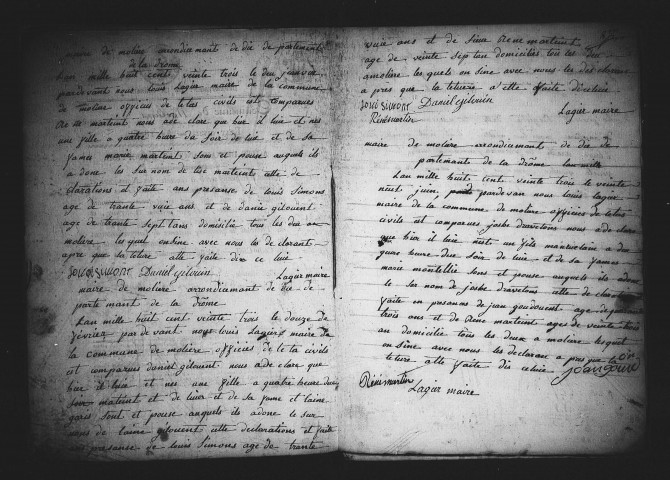 maire de molière arrondismant de die de partement
de la drôme
Lan mille huit cent veinte trois le deu janvier
pardevant nous louis Lagier maire de la commune
de molière officiés de letas civils est comparues
marteint nous adé clare que hier à luie et nes
une fille a quatre heure du soir de luie et de sa
famee marie marteint sons et pouse auquels ils
a done les sur nom de lise marteint cette de
clarations et faite ans presanse de louis Simons
age de trante vuie ans et de danié gilouent
age de trante sept tans domisilié tous les deu an
molière les quel onsine avec nous les de clarant
apre que la teture atte faite die ce luie
Louissimont Daniel gilouin Lagier maire
maire de molière arrondiamant de die de
parte mant de la drôme
Lan mille huit cent veinte trois le douze de
février par devant nous louis Lagier maire de
la commune de molière officiés de leta civils
est comparus daniel gilouent nous a de clare que
hier et nes une fille a quatre heure du
soir mateint et de luier et de sa fame et laine
gais sont et pouse auquels ils adone le sur
nons de laine gilouent cette declarations et faite
ans presanse de louis Simons age de trante
vuie ans et de sieur Rene marteint
age de veinte sep tans domicilies tous les deu
amolière les quels on sine avec nous les des clarans
a pres que la teture a ette faite deceluie
Louissimont Daniel gilouin Lagier maire
Rénémartin
maire de molière arrondiscmant de die du
partemant de la drôme lan mille
Lan mille huit cent veinte trois le veinte
neuf juin pardevan nous louis Lagier
maire de la commune de molière officiés de letas
civils est comparues josbe dravetons nous ade clare
que hier il luie neit un fils a de
quare heure deu soir de luie et de sa fames
marie montellié sons et pouse auquels ils adone
le sur nom de josbe dravetons cette de claration
faite en presanse de jean goudouent age de
trois ans et de Rene marteint ages de veinte trois
an domicilie tous les deux a molière lesquel
on sine avec nous les declarans a pres que la
teture atte faite die celuie
Réné martin
Lagier maire